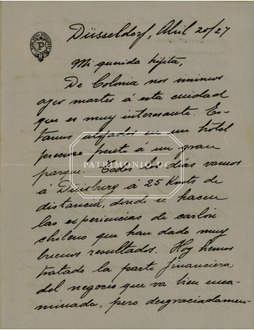 Düsseldorf, Abril 20/27
Mi querida hijita,
De Colonia nos vinimos
ayer martes á esta ciudad
que es muy interesante. Es-
tamos alojados en un hotel
frente á un gran
parque. Todos los dias vamos
á Duisburg á 25 Kmts de
distancia, donde se hacen
las experiencias de carbón
chileno que han dado muy
buenos resultados. Hoy hemos
tratado la parte financiera
del negocio que va bien enca-
minada, pero desgraciadamen-
PATRIMONIO UC